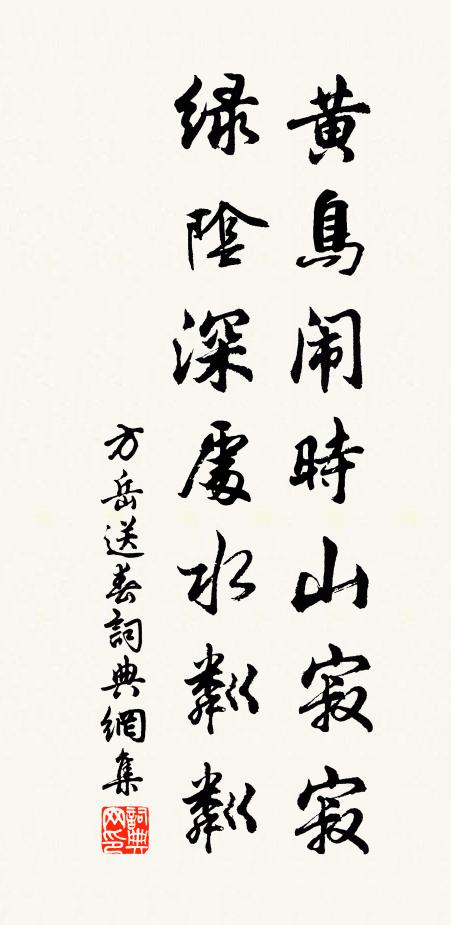 黄鳥闹時山寂寂
緑陰深處水粼粼
方岳送春詞典網集
詞典網印